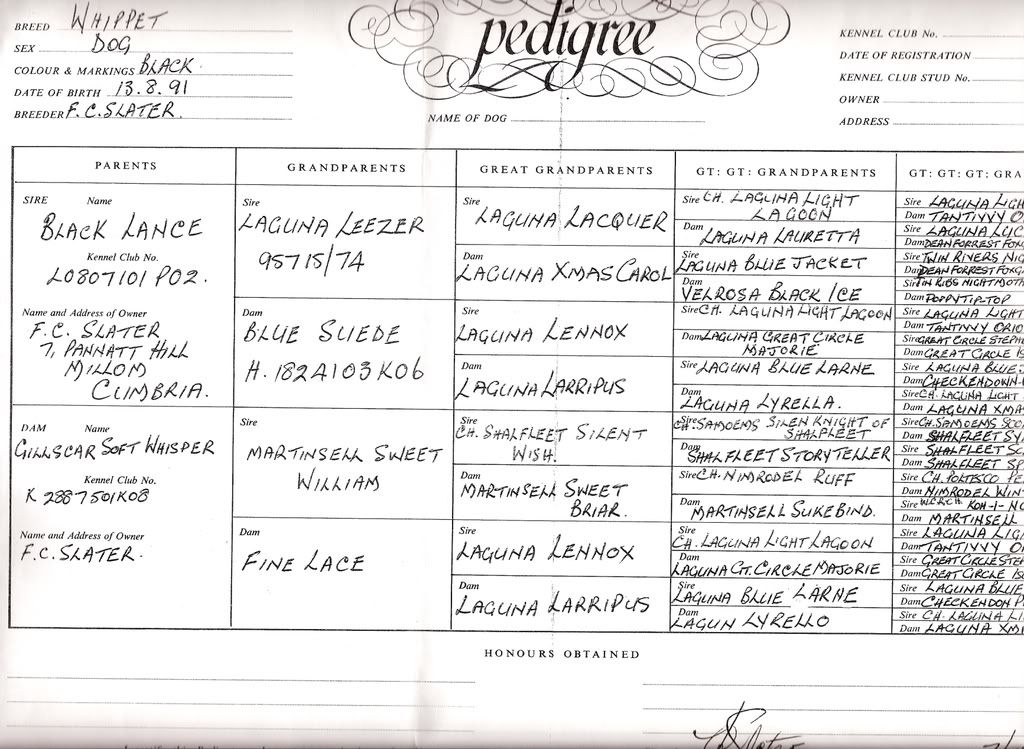 pedigree
BREED WHIPPET
SEX DOG
COLOUR & MARKINGS BLACK
DATE OF BIRTH 13.8.91
BREEDER F.C. SLATER.
NAME OF DOG
KENNEL CLUB No.
DATE OF REGISTRATION
KENNEL CLUB STUD No.
OWNER
ADDRESS
PARENTS
SIRE Name
BLACK LANCE
Kennel Club No.
L0807101 P02.
Name and Address of Owner
F.C. SLATER
7, PANNATT HILL
MILLOM
CUMBRIA.
DAM Name
GILLSCAR SOFT WHISPER
Kennel Club No.
K2887501K08
Name and Address of Owner
F.C. SLATER.
GRANDPARENTS
Sire
LAGUNA LEEZER
95715/74
Dam
BLUE SUEDE
H.1824103K06
Sire
MARTINSELL SWEET
WILLIAM
Dam
FINE LACE
GREAT GRANDPARENTS
Sire
LAGUNA LACQUER
Dam
LAGUNA XMAS CAROL
Sire
LAGUNA LENNOX
Dam
LAGUNA LARRIPUS
Sire
CH. SHALFLEET SILENT
WISH.
Dam
MARTINSELL SWEET
BRIAR.
Sire
LAGUNA LENNOX
Dam
LAGUNA LARRIPUS
GT: GT: GRANDPARENTS
Sire CH. LAGUNA LIGHT
LAGOON
Dam
LAGUNA LAURETTA
Sire
LAGUNA BLUE JACKET
Dam
VELROSA BLACK ICE
Sire CH. LAGUNA LIGHT LAGOON
Dam LAGUNA GREAT CIRCLE
MAJORIE
Sire LAGUNA BLUE LARNE
Dam
LAGUNA LYRELLA.
Sire
CH. SAMOEMS SILEN KNIGHT OF
SHALPLEET
Dam
SHALFLEET STORYTELLER
Sire CH. NIMRODEL RUFF
Dam
MARTINSELL SUKEBIND.
Sire
CH. LAGUNA LIGHT LAGOON
Dam
LAGUNA GT. CIRCLE MAJORIE
Sire
LAGUNA BLUE LARNE
Dam
LAGUN LYRELLO
GT: GT: GT: GRA
Sire LAGUNA LIGH
Dam TANTIVVY O
Sire LAGUNA LUC
Dam DEAN FORREST FOX
Sire TWIN RIVERS NIG
Dam DEAN FORREST FOXG
Sire TIN RIBS NIGHT MOTH
Dam POPPY TIP-TOP
Sire LAGUNA LIGHT
Dam TANTIVVY ORIO
Sire GREAT CIRCLE STEPH
Dam GREAT CIRCLE IS
Sire LAGUNA BLUE
Dam CHECKENDOWN
Sire CH. LAGUNA LIGHT
Dam LAGUNA XMA
Sire CH. SAMOEMS
Dam SHALFLEET SY
Sire SHALFLEET SC
Dam SHALFLEET SP
Sire CH. POLTESCO PE
Dam NIMRODEL WIN
Sire W.C.R.CH. KOH-I-NO
Dam MARTINSELL
Sire LAGUNA LIG
Dam TANTIVVY O
Sire GREAT CIRCLE STE
Dam GREAT CIRCLE IS
Sire LAGUNA BLUE
Dam CHECKENDON P
Sire CH. LAGUNA LI
Dam LAGUNA XM
HONOURS OBTAINED